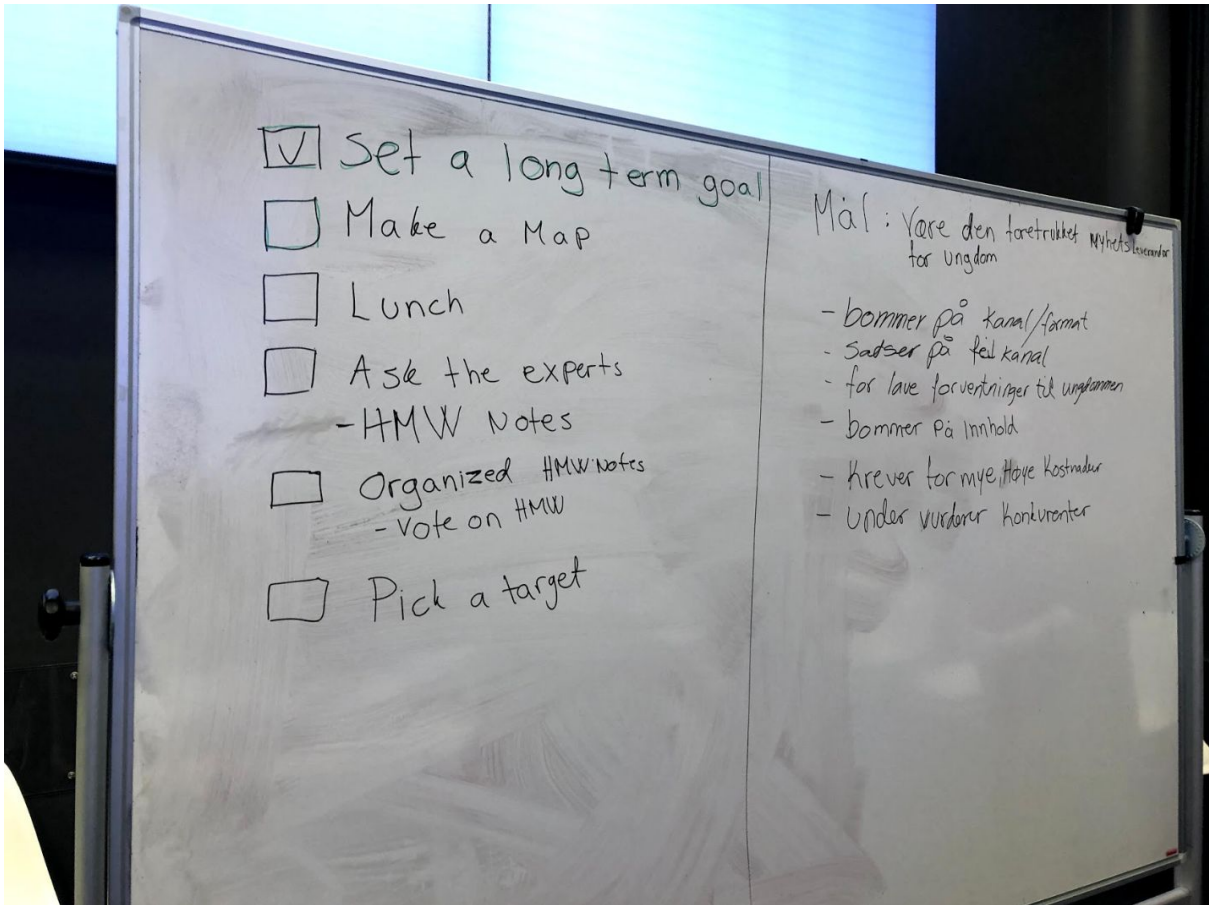 Set a long term goal
Make a Map
Lunch
Ask the experts
- HMW Notes
Organized HMW Notes
- Vote on HMW
Pick a target
Mål : Være den foretrukket Nyhetsleverandør
for ungdom
- bommer på kanal/format
- Satser på feil kanal
- for lave forventninger til ungdommen
- bommer på innhold
- Krever for mye, Høye Kostnader
- Under vurderer Konkurenter